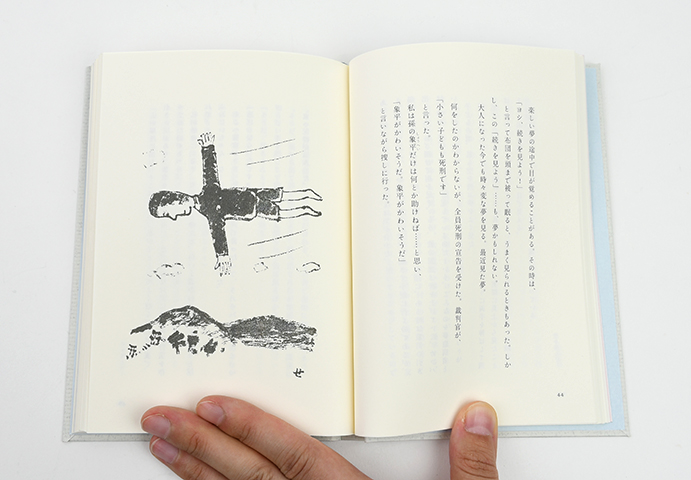 楽しい夢の途中で目が覚めることがある。その時は、
「ヨシ、続きを見よう！」
と言って布団を頭まで被って眠ると、うまく見られるときもあった。しか
し、この「続きを見よう」……も、夢かもしれない。
大人になった今でも時々変な夢を見る。最近見た夢。
何をしたのかわからないが、全員死刑の宣告を受けた。裁判官が、
「小さい子どもも死刑です」
と言った。
私は孫の象平だけは何とか助けねば……と思い、
「象平がかわいそうだ、象平がかわいそうだ」
と言いながら捜しに行った。
44